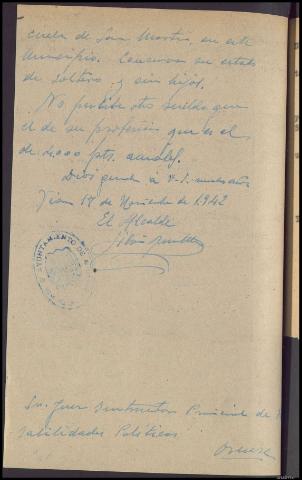 cuela de San Martin, en este
Municipio. Conserva su estado
de soltero y sin hijos.
No percibe otro sueldo que
el de su profesion que es el
de 4.000 pts. anuales.
Dios guarde á V.S. muchos años
17 de Noviembre de 1.942
El Alcalde
AYUNTAMIENTO DE
Sr. Juez Instructor Provincial de
sabilidades Politicas
Orense